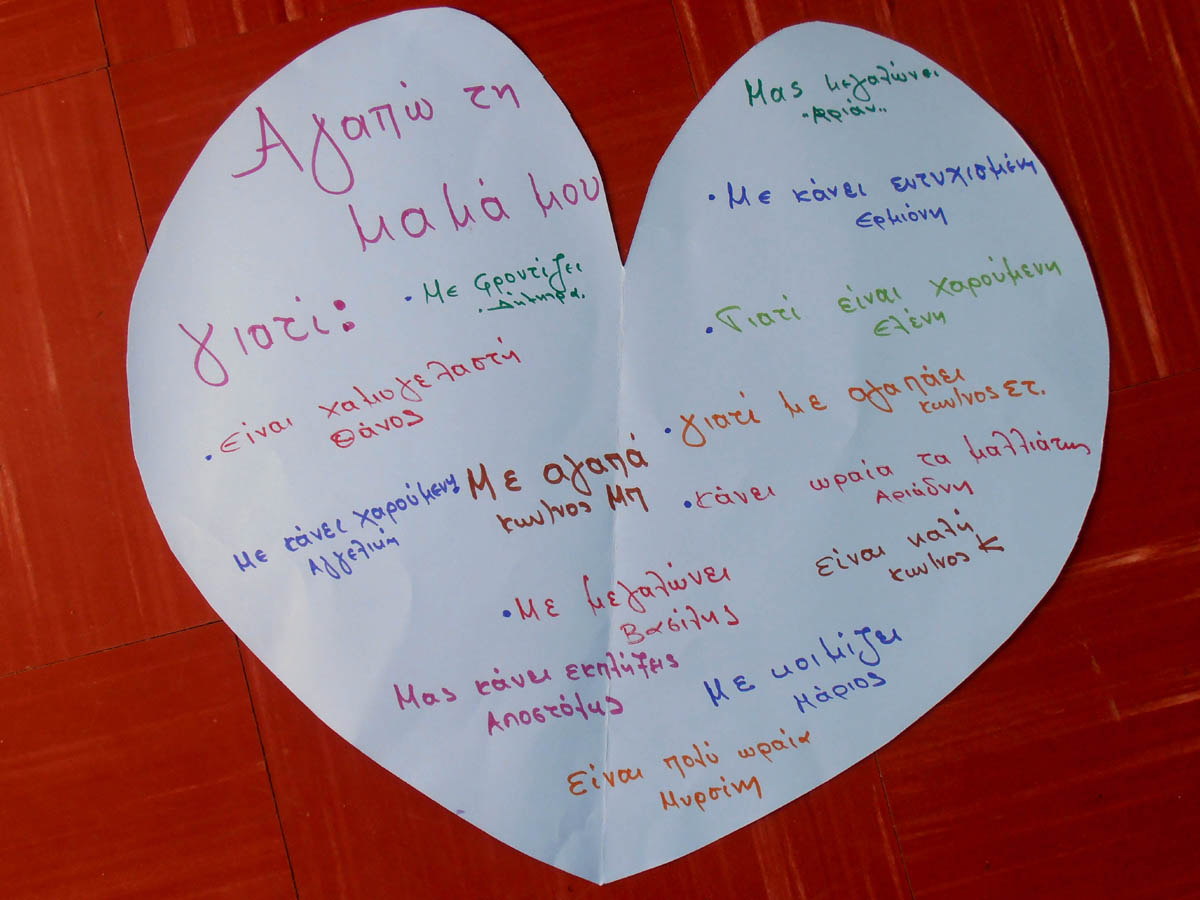 Αγαπώ τη
μαμά μου
γιατί:
• Με φροντίζει
Δήμητρα.
• είναι χαμογελαστή
Θάνος
Με κάνει χαρούμενη
Αγγελική
Με αγαπά
κων/νος Μπ
• Με μεγαλώνει
Βασίλης
Μας κάνει εκπλήξεις
Αποστόλης
Είναι πολύ ωραία
Μυρσίνη
Μας μεγαλώνει
• Με κάνει ευτυχισμένη
Ερμιόνη
• Γιατί είναι χαρούμενη
Ελένη
• γιατί με αγαπάει
κων/νος Στ.
• κάνει ωραία τα μαλλιάτης
Αριάδνη
είναι καλή
κων/νος Κ
Με κοιμίζει
Μάριος